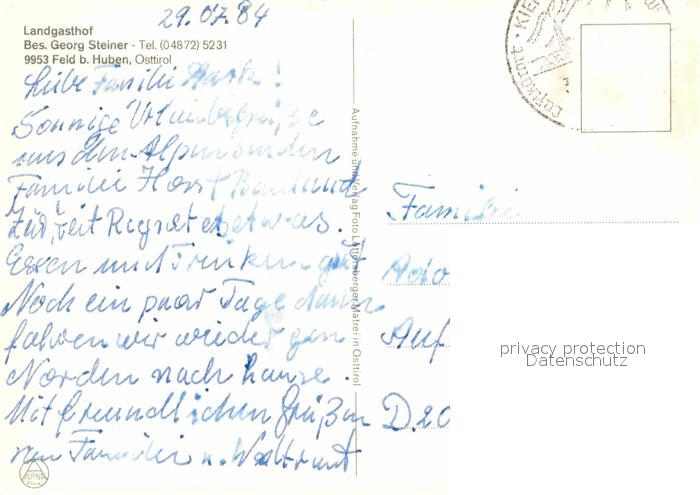 29.07.84
Landgasthof
Bes. Georg Steiner - Tel. (04872) 5231
9953 Feld b. Huben, Osttirol
Liebe Familie
Sonnige Urlaubsgrüße
aus den Alpen senden
Familie Horst
Zur Zeit Regnet es etwas.
Essen und Trinken gut
Noch ein paar Tage dann
fahren wir wieder gen
Norden nach hause.
Mit freundlichen Grüßen
Familie u. Waltraut
Aufnahme und Verlag Foto Lottersberger Matrei in Osttirol
ALPINA
Familie
Ado
Auf
D.20
privacy protection
Datenschutz